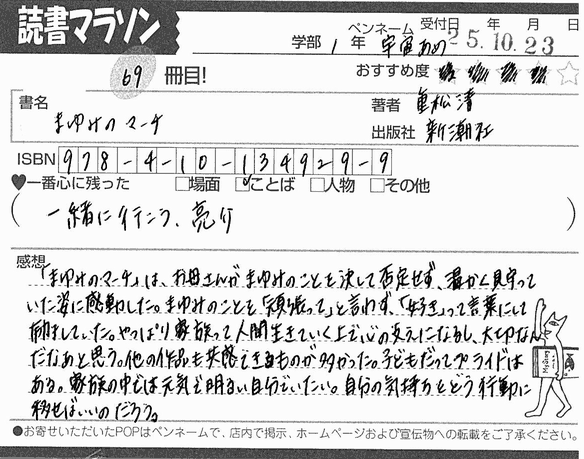 読書マラソン
学部 1年
ペンネーム 宇宙あめ
受付日 年 月 日
25.10.23
69 冊目!
おすすめ度 ★★★★☆
書名 まゆみのマーチ
著者 重松清
出版社 新潮社
ISBN 978-4-10-134929-9
♥一番心に残った □場面 ☑ことば □人物 □その他
(一緒に行こう、亮介)
感想
「まゆみのマーチ」は、お母さんがまゆみのことを決して否定せず、温かく見守って
いた姿に感動した。まゆみのことを「頑張って」と言わず、「好き」って言葉にして
励ましていた。やっぱり家族って人間生きていく上で心の支えになるし、大切なん
だなあと思う。他の作品も共感できるものが多かった。子どもだってプライドは
ある。家族の中では元気で明るい自分でいたい。自分の気持ちをどう行動に
移せばいいのだろう。
●お寄せいただいたPOPはペンネームで、店内で掲示、ホームページおよび宣伝物への転載をご了承ください。